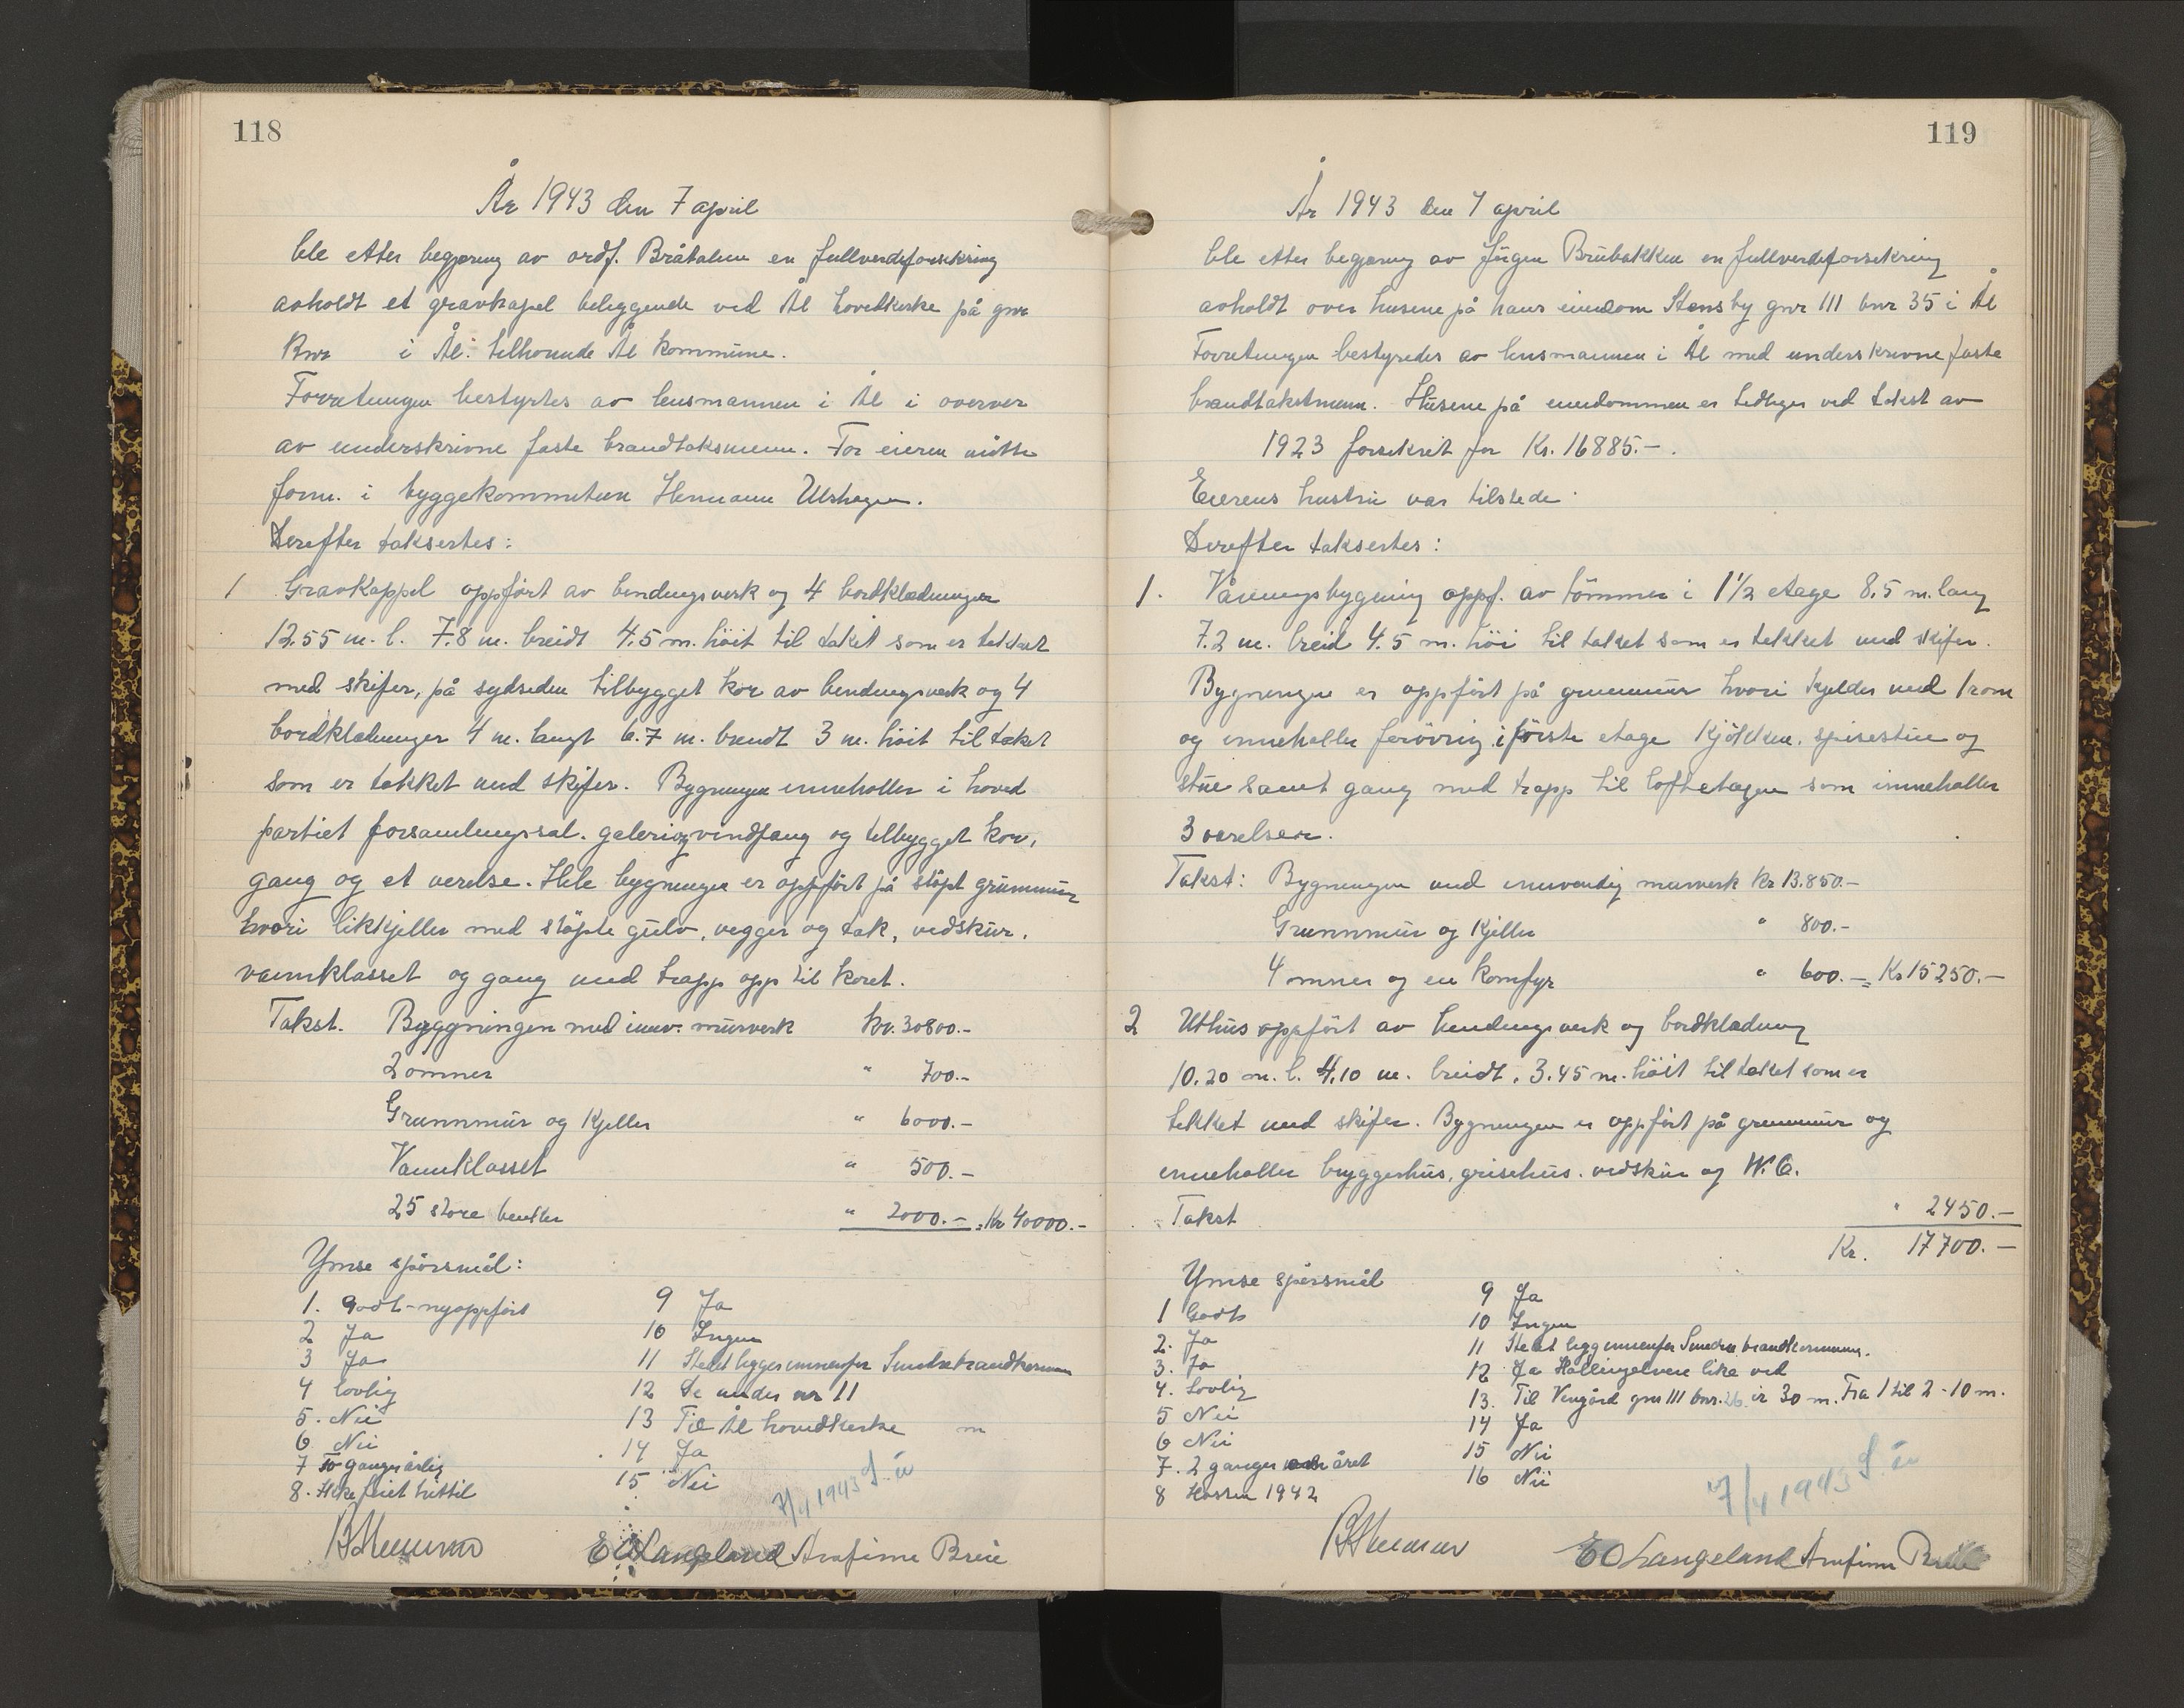 118
År 1943 den 7 april
ble etter begjæring av ordf. Bråtalien en fullverdiforsikring
avholdt et gravkapel beliggende ved Ål hovedkirke på gnr
Bnr i Ål. tilhörende Ål kommune.
Forretningen bestyrtes av lensmannen i Ål i overvær
av underskrivne faste brandtaksmenn. For eieren mötte
form. i byggekommiteen Hermann Ulshagen.
Derefter taksertes:
1 Gravkappel oppfört av bindingsverk og 4 bordklædninger
12.55 m. l. 7.8 m. breidt 4.5 m. höit til taket som er tekket
med skifer, på sydsiden tilbygget kor av bindingsverk og 4
bordklædninger 4 m. langt 6.7 m. breidt 3 m. höit til taket
som er tekket med skifer. Bygningen inneholler i hoved
partiet forsamlingssal. galeri og vindfang og tilbygget kor,
gang og et værelse. Hele bygningen er oppfört på stöpt grunnmur
hvori likkjeller med stöpte gulv, vegger og tak, vedskur,
vannklasset og gang med trapp opp til koret.
Takst. Byggningen med innv. murverk kr. 30800.-
2 omner " 700.-
Grunnmur og Kjeller " 6000.-
Vannklasset " 500.-
25 store benker " 2000.- = Kr 40000.-
Ymse spörsmål:
1. Godt-nyoppfört
2 Ja
3 Ja
4 lovlig
5. Nei
6 Nei
7 To ganger årlig
8. Ikke feiet hittil
9 Ja
10 Ingen
11 Stedet ligger innenfor Sundre brandkommune
12 Se under nr 11
13 Til Ål hovedkirke m
14 Ja
15 Nei
7/4 1943
E O Langeland Arnfinn Breie
119
År 1943 den 7 april
ble etter begjæring av Jörgen Brubakken en fullverdiforsikring
avholdt over husene på hans eiendom Stensby gnr 111 bnr 35 i Ål
Forretningen bestyredes av lensmannen i Ål med underskrevne faste
brandtakstmenn. Husene på eiendommen er tidliger ved takst av
1923 forsikret for Kr. 16885.-.
Eierens hustru var tilstede.
Derefter taksertes:
1. Våningsbygning oppf. av tömmer i 1 1/2 etage 8,5 m. lang
7.2 m. breid 4.5 m. höi til taket som er tekket med skifer.
Bygningen er oppfört på grunnmur hvori kjelder med 1 rom
og inneholler forövrig i förste etage Kjökken, spisestue og
stue samt gang med trapp til loftetagen som inneholler
3 værelser.
Takst: Bygningen med innvendig murverk kr 13.850.-
Grunnmur og Kjeller " 800.-
4 omner og en komfyr " 600.- = Kr 15250.-
2 Uthus oppfört av bindingsverk og bordklædning
10.20 m. l. 4.10 m. breidt. 3.45 m. höit til taket som er
tekket med skifer. Bygningen er oppfört på grunnmur og
inneholler bryggerhus, grisehus. vedskur og W.C.
Takst " 2450.-
Kr. 17700.-
Ymse spörsmål
1 Godt
2. Ja
3. Ja
4. Lovlig
5 Nei
6 Nei
7. 2 ganger året
8 Hösten 1942
9 Ja
10 Ingen
11 Stedet ligg innenfor Sundre brandkommune.
12 Ja Hallingelven like ved
13. Til Vengård gnr 111 bnr. 26 er 30 m. Fra 1 til 2 - 10 m.
14 Ja
15 Nei
16 Nei
7/4 1943
E O Langeland Arnfinn Breie